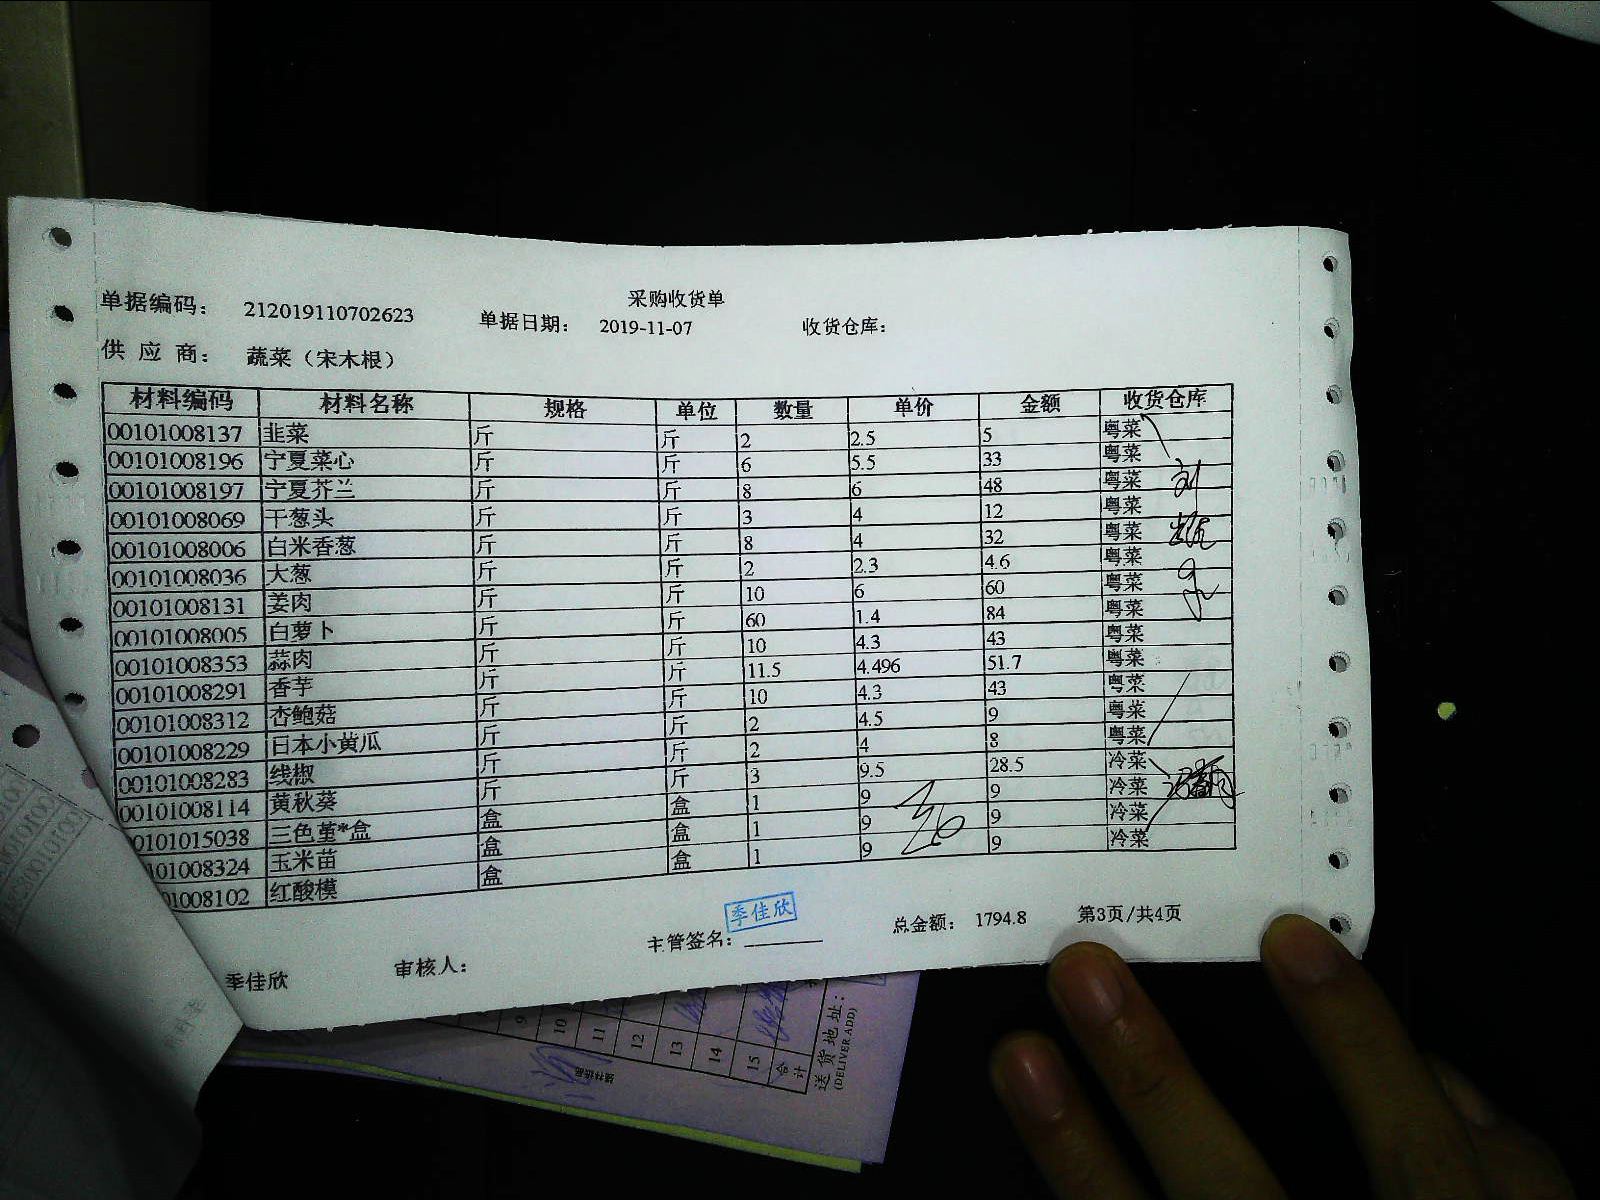 采购收货单
单据编码： 212019110702623 单据日期： 2019-11-07 收货仓库：
供 应 商： 蔬菜（宋木根）
材料编码 材料名称 规格 单位 数量 单价 金额 收货仓库
00101008137 韭菜 斤 斤 2 2.5 5 粤菜
00101008196 宁夏菜心 斤 斤 6 5.5 33 粤菜
00101008197 宁夏芥兰 斤 斤 8 6 48 粤菜
00101008069 干葱头 斤 斤 3 4 12 粤菜
00101008006 白米香葱 斤 斤 8 4 32 粤菜
00101008036 大葱 斤 斤 2 2.3 4.6 粤菜
00101008131 姜肉 斤 斤 10 6 60 粤菜
00101008005 白萝卜 斤 斤 60 1.4 84 粤菜
00101008353 蒜肉 斤 斤 10 4.3 43 粤菜
00101008291 香芋 斤 斤 11.5 4.496 51.7 粤菜
00101008312 杏鲍菇 斤 斤 10 4.3 43 粤菜
00101008229 日本小黄瓜 斤 斤 2 4.5 9 粤菜
00101008283 线椒 斤 斤 2 4 8 粤菜
00101008114 黄秋葵 斤 斤 3 9.5 28.5 冷菜
0101015038 三色堇*盒 盒 盒 1 9 9 冷菜
101008324 玉米苗 盒 盒 1 9 9 冷菜
01008102 红酸模 盒 盒 1 9 9 冷菜
季佳欣 审核人： 主管签名： 季佳欣 总金额： 1794.8 第3页/共4页
9
10
11
12
13
14
15
合计
送货地址：
(DELIVER ADD)